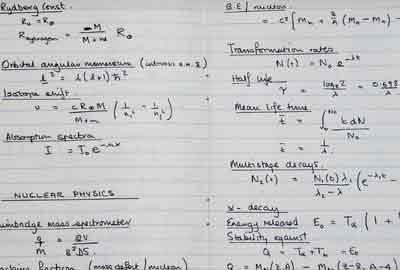 Rydberg Const.
R₀ = R∞
R_hydrogen = ∞M / (M + m) R∞
Orbital angular momentum
l² = l(l+1)ħ²
Isotope shift
υ = cR∞M / (M+m) (1/n₁² - 1/n₂²)
Absorption spectra
I = I₀e
NUCLEAR PHYSICS
mass spectrometer
q/m = / B²DS
fraction (mass defect/nucleon)
B.E/nucleon
= c² [Mₙ + (Mₙ - Mₙ) -
Transformation rates
N(t) = N₀ e^-λt
Half life
τ = logₑ2 / λ = 0.693
Mean life time
t̄ = ∫ t dN / N₀
t̄ = 1/λ
Multistage decays
N₂(t) = N₁(0) λ₁ / (λ₂ - λ) (e^-λ₁t -
α - decay
Energy released E₀ = Tα (1 +
Stability against
Q = Tα + Tb = E₀
Q = (Z,A) - (Z-2, A-4)